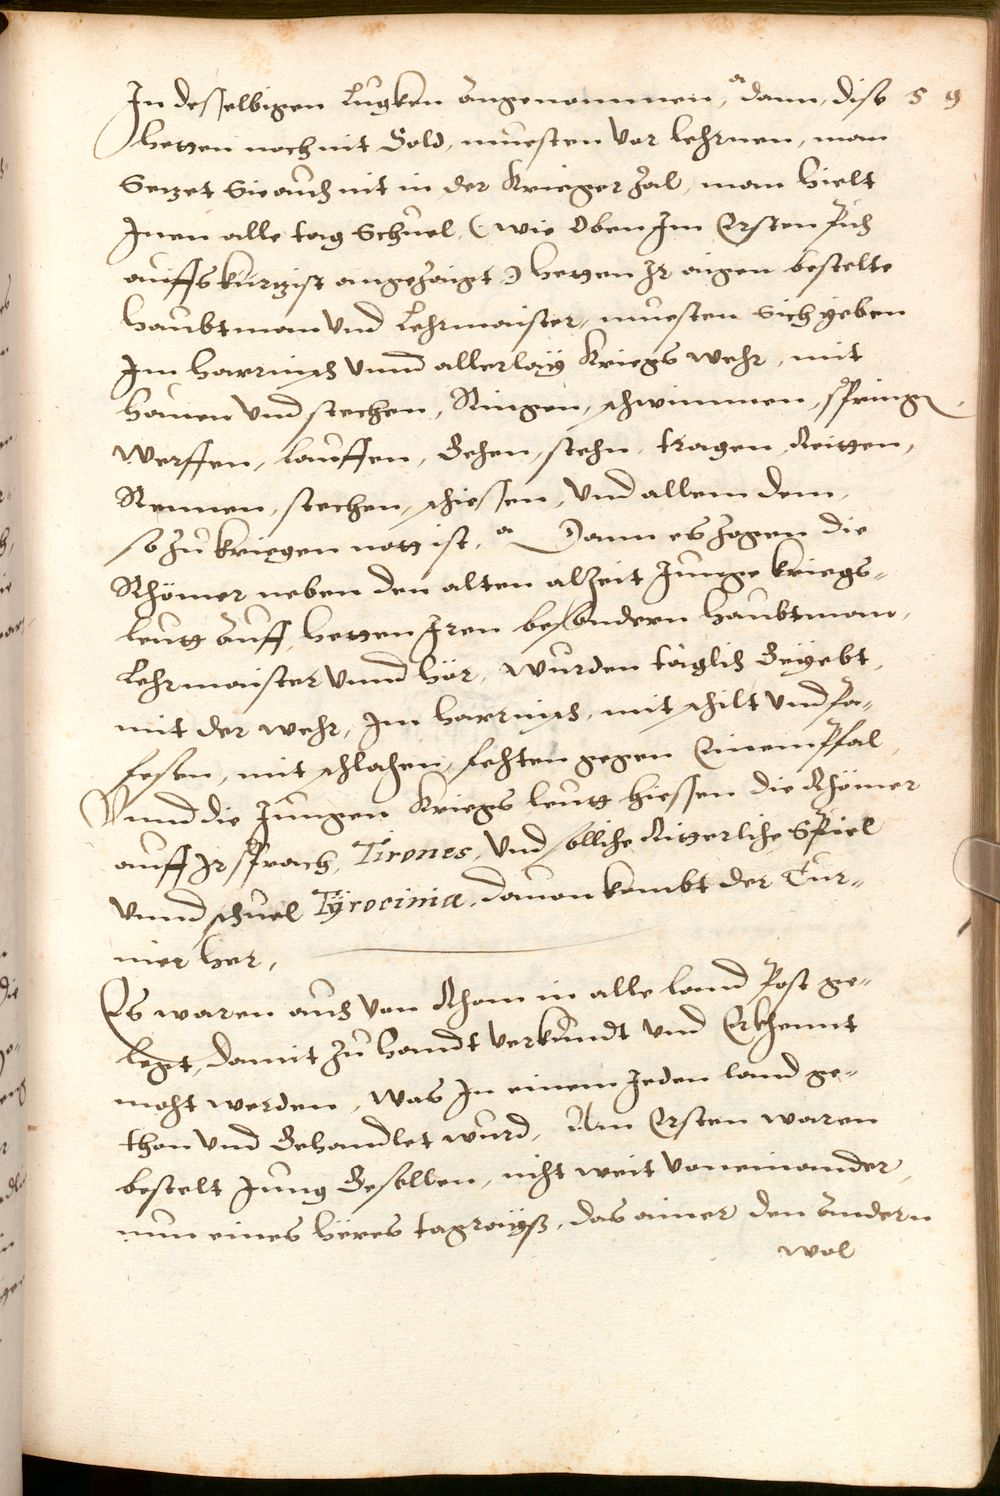 In desselbigen Lugken angenommen, dann, dise 59
hetten noch nit Sold, muesten vor lehrnen, man
Setzet Sie auch nit in der Krieger Zal, man hielt
Inen alle tag Schuel (wie Oben Im Ersten Puch
auffs kurtzist angezaigt) hetten Ir aigen bestelte
haubtman vnd Lehrmaister, muesten Sich yeben
Im harnisch vnnd allerlay Kriegs wehr, mit
hauen vnd stechen, Ringen, schwimmen, springen
Werffen, lauffen, Gehen, stehn, tragen, Reitten,
Rennen, stechen, schiessen, vnd allem dem,
so zu kriegen nott ist. Dann es zogen die
Rhömer neben den alten alzeit Junge kriegs-
leutt auff, hetten Iren besondern haubtman,
Lehrmaister vnnd hör, wurden täglich Geyebt,
mit der wehr, Im harnisch, mit schilt vnd Pa-
fesen, mit schlahen, fehten gegen Einem Pfal,
Vnnd die Jungen Kriegs leutt hiessen die Rhömer
auff Ir sprach, Tirones, Vnd solliche Ritterliche Spiel
vnnd schuel Tÿrocinia, dauon kombt der Tur-
nier her,
Es waren auch von Rhom in alle land Post ge-
legt, damit zu handt verkündt vnd Erkhennt
möcht werden, was In einem Jeden land ge-
thon vnd Gehandlet wurd, Am Ersten waren
bestelt Jung Gesellen, nicht weit voneinander,
nun eines hëres tagrayß, das ainer den andern
wol